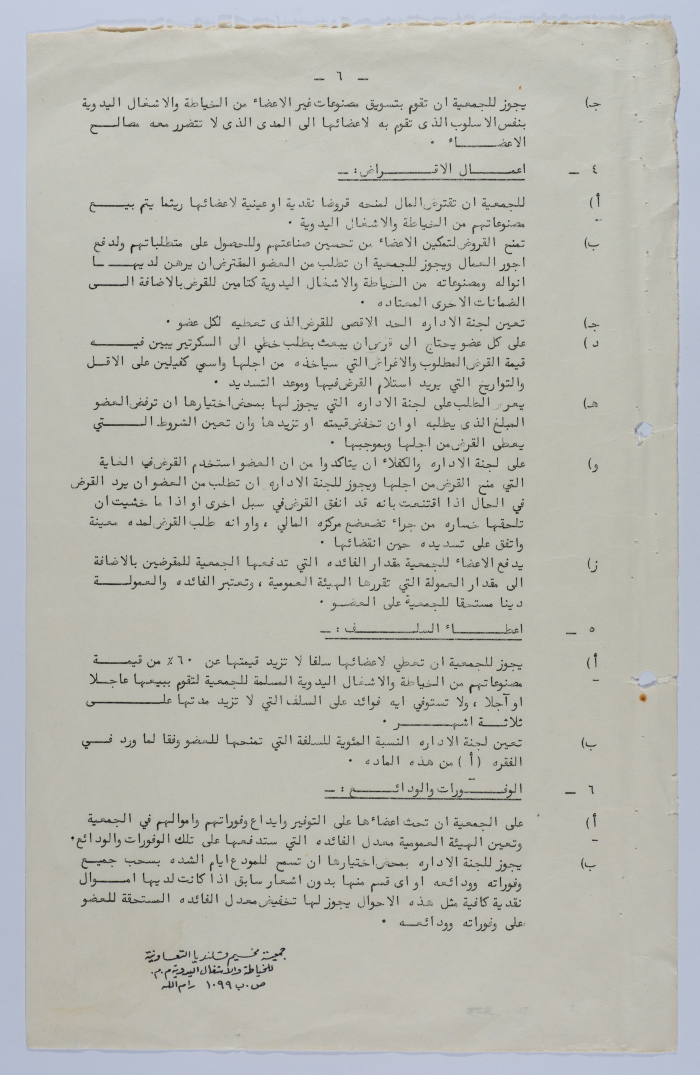 — ٦ —
جـ) يجوز للجمعية ان تقوم بتسويق مصنوعات غير الاعضاء من الخياطة والاشغال اليدوية
بنفس الاسلوب الذى تقوم به لاعضائها الى المدى الذى لا تتضرر معه مصالح
الاعضاء ٠
٤ – اعمال الاقراض : –
أ) للجمعية ان تقترض المال لمنحه قروضا نقدية او عينية لاعضائها ريثما يتم بيع
مصنوعاتهم من الخياطة والاشغال اليدوية ٠
ب) تمنح القروض لتمكين الاعضاء من تحسين صناعتهم وللحصول على متطلباتهم ولدفع
اجور العمال ويجوز للجمعية ان تطلب من العضو المقترض ان يرهن لديها
انواله ومصنوعاته من الخياطة والاشغال اليدوية كتامين للقرض بالاضافة الى
الضمانات الاخرى المعتاده ٠
جـ) تعين لجنة الاداره الحد الاقصى للقرض الذى تعطيه لكل عضو ٠
د) على كل عضو يحتاج الى قرض ان يبعث بطلب خطي الى السكرتير يبين فيه
قيمة القرض المطلوب والاغراض التي سياخذه من اجلها واسمي كفيلين على الاقل
والتواريخ التي يريد استلام القرض فيها وموعد التسديد ٠
هـ) يعرض الطلب على لجنة الاداره التي يجوز لها بمحض اختيارها ان ترفض العضو
المبلغ الذى يطلبه او ان تخفض قيمته او تزيدها وان تعين الشروط التي
يعطى القرض من اجلها وبموجبها ٠
و) على لجنة الاداره والكفلاء ان يتاكدوا من ان العضو استخدم القرض في الغاية
التي منح القرض من اجلها ويجوز للجنة الاداره ان تطلب من العضو ان يرد القرض
في الحال اذا اقتنعت بانه قد انفق القرض في سبل اخرى او اذا ما خشيت ان
تلحقها خساره من جراء تضعضع مركزه المالي ، او انه طلب القرض لمده معينة
واتفق على تسديده حين انقضائها ٠
ز) يدفع الاعضاء للجمعية مقدار الفائده التي تدفعها الجمعية للمقرضين بالاضافة
الى مقدار العمولة التي تقررها الهيئة العمومية ، وتعتبر الفائده والعمولة
دينا مستحقا للجمعية على العضو ٠
٥ – اعطاء السلف : –
أ) يجوز للجمعية ان تعطي لاعضائها سلفا لا تزيد قيمتها عن ٦٠٪ من قيمة
مصنوعاتهم من الخياطة والاشغال اليدوية المسلمة للجمعية لتقوم ببيعها عاجلا
او آجلا ، ولا تستوفي ايه فوائد على السلف التي لا تزيد مدتها على
ثلاثة اشهر ٠
ب) تعين لجنة الاداره النسبة المئوية للسلفة التي تمنحها للعضو وفقا لما ورد في
الفقره (أ) من هذه الماده ٠
٦ – الوفورات والودائع : –
أ) على الجمعية ان تحث اعضاءها على التوفير وايداع وفوراتهم واموالهم في الجمعية
وتعين الهيئة العمومية معدل الفائده التي ستدفعها على تلك الوفورات والودائع٠
ب) يجوز للجنة الاداره بمحض اختيارها ان تسمح للمودع ايام الشده بسحب جميع
وفوراته وودائعه او اى قسم منها بدون اشعار سابق اذا كانت لديها اموال
نقدية كافية مثل هذه الاحوال يجوز لها تخفيض معدل الفائده المستحقة للعضو
على وفوراته وودائعه ٠
جمعية مخيم قلنديا التعاونية
للخياطة والأشغال اليدوية م.م.
ص.ب ١٠٩٩ رام الله